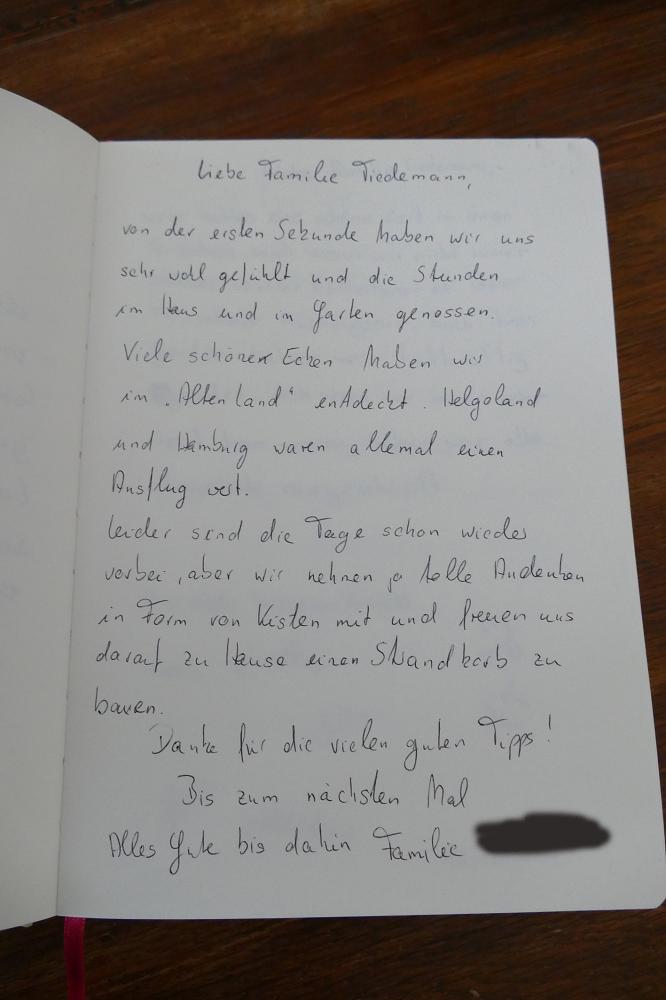 Liebe Familie Tiedemann,
von der ersten Sekunde haben wir uns
sehr wohl gefühlt und die Stunden
im Haus und im Garten genossen.
Viele schönen Ecken haben wir
im „Alten Land“ entdeckt. Helgoland
und Hamburg waren allemal einen
Ausflug wert.
Leider sind die Tage schon wieder
vorbei, aber wir nehmen ja tolle Andenken
in Form von Kisten mit und freuen uns
darauf zu Hause einen Strandkorb zu
bauen.
Danke für die vielen guten Tipps!
Bis zum nächsten Mal
Alles Gute bis dahin Familie